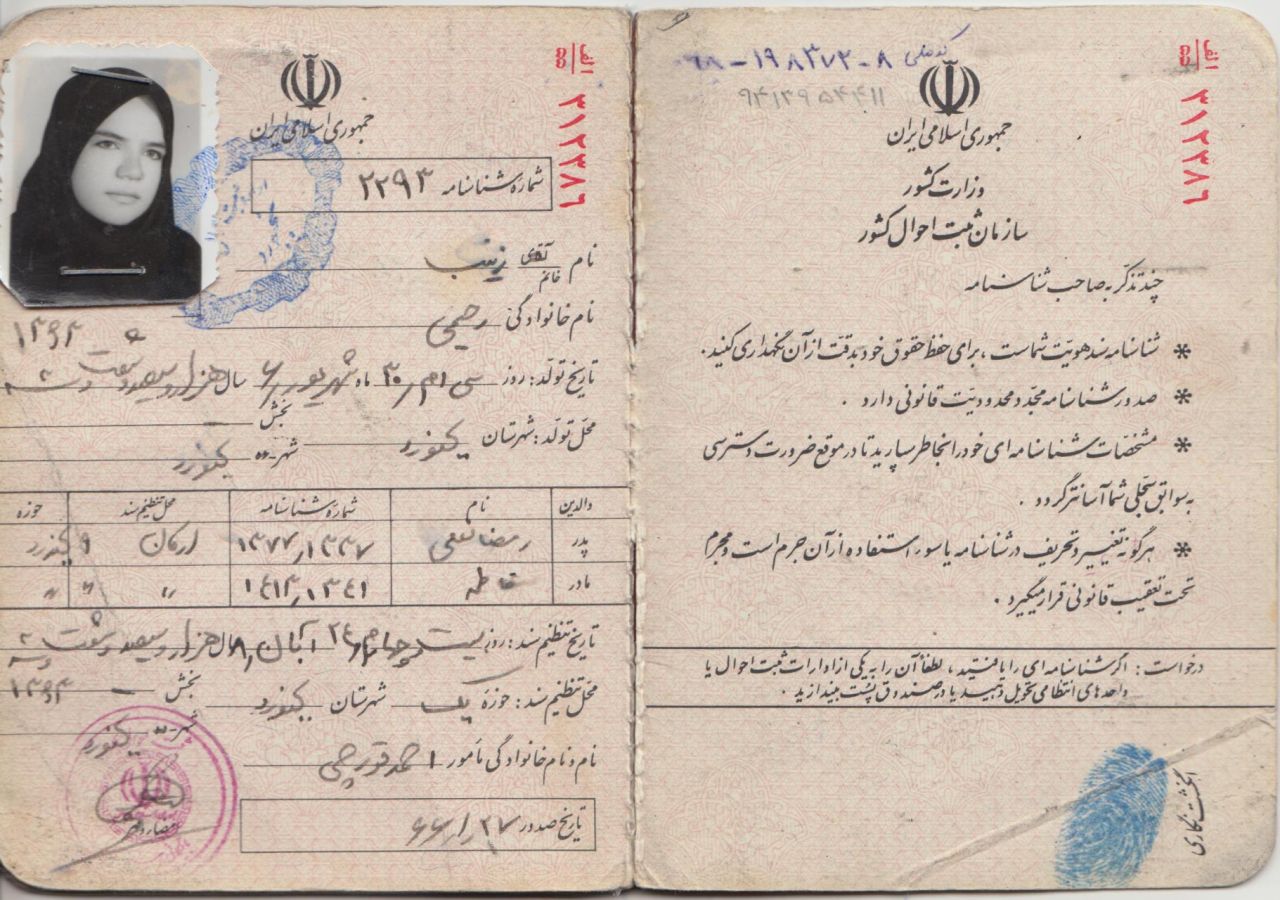 الف ۵۵ ۳۱۲۳۸۶
جمهوری اسلامی ایران
شماره شناسنامه ۲۲۹۳
نام آقای خانم زینب
نام خانوادگی رحیمی
تاریخ تولد: روز سی ام ۳۰ ماه شهریور ۶ سال هزار و سیصد و شصت و سه ۱۳۶۳
محل تولد: شهرستان بخش
شهر
والدین نام شماره شناسنامه محل تنظیم سند حوزه
پدر رمضانعلی
مادر فاطمه ۱۳۴۱ " " "
تاریخ تنظیم سند: روز بیست و چهارم ۲۴ آبان ۸ سال هزار و سیصد و شصت و سه ۱۳۶۳
محل تنظیم سند: حوزه یک شهرستان بخش –
شهر
نام و نام خانوادگی مأمور
تاریخ صدور
الف ۵۵ ۳۱۲۳۸۶
کد ملی
جمهوری اسلامی ایران
وزارت کشور
سازمان ثبت احوال کشور
چند تذکر به صاحب شناسنامه
* شناسنامه سند هویت شماست ، برای حفظ حقوق خود بدقت از آن نگهداری کنید .
* صدور شناسنامه مجدد محدودیت قانونی دارد .
* مشخصات شناسنامه ای خود را بخاطر بسپارید تا در موقع ضرورت دسترسی
به سوابق سجلی شما آسانتر گردد .
* هرگونه تغییر و تحریف در شناسنامه یا سوء استفاده از آن جرم است و مجرم
تحت تعقیب قانونی قرار میگیرد .
درخواست : اگر شناسنامه ای را یافتید ، لطفاً آن را به یکی از ادارات ثبت احوال یا
واحدهای انتظامی تحویل دهید یا در صندوق پست بیندازید .
انگشت نگاری